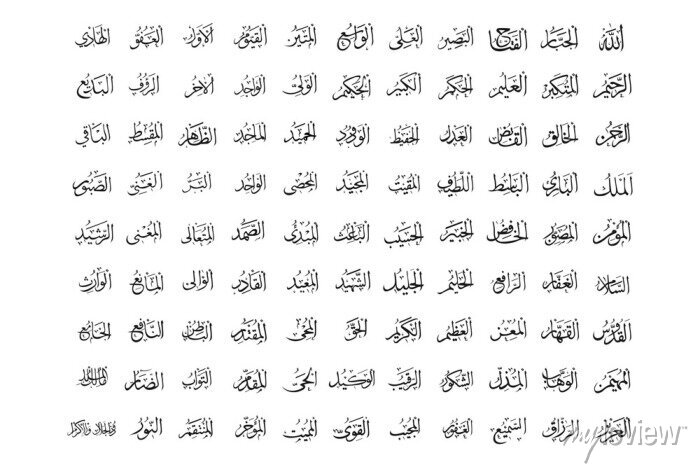 الله الجبار الفتاح البصير العلي الواسع المتين القيوم الأول العفو الهادي
الرحيم المتكبر العليم الحكم الكبير الحكيم الولي الواجد الآخر الرؤوف البديع
الرحمن الخالق القابض العدل الحفيظ الودود الحميد الماجد الظاهر المقسط الباقي
الملك البارئ الباسط اللطيف المقيت المجيد المحصي الواحد البر الغني الصبور
المؤمن المصور الخافض الخبير الحسيب الباعث المبدئ الصمد المتعالي المغني الرشيد
السلام الغفار الرافع الحليم الجليل الشهيد المعيد القادر الوالي المانع الوارث
القدوس القهار المعز العظيم الكريم الحق المحيي المقتدر الباطن النافع الجامع
المهيمن الوهاب المذل الشكور الرقيب الوكيل الحي المقدم التواب الضار مالك الملك
العزيز الرزاق السميع الغفور المجيب القوي المميت المؤخر المنتقم النور ذو الجلال والإكرام
myloview